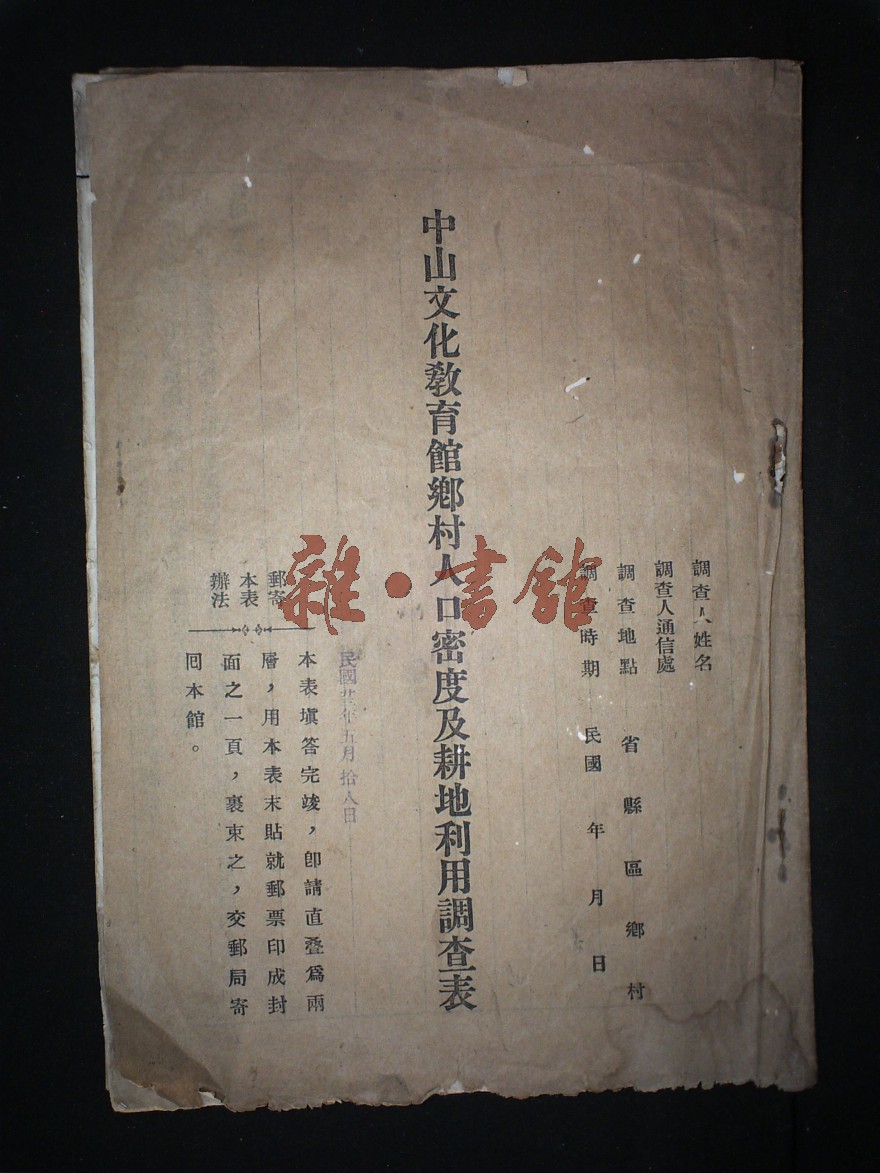 調查人姓名
調查人通信處
調查地點 省 縣 區 鄉 村
調查時期 民國 年 月 日
中山文化教育館鄉村人口密度及耕地利用調查表
民國廿三年五月拾八日
郵寄
本表
辦法
本表填答完竣，卽請直叠爲兩
層，用本表末貼就郵票印成封
面之一頁，裹束之，交郵局寄
囘本館。
雜·書館